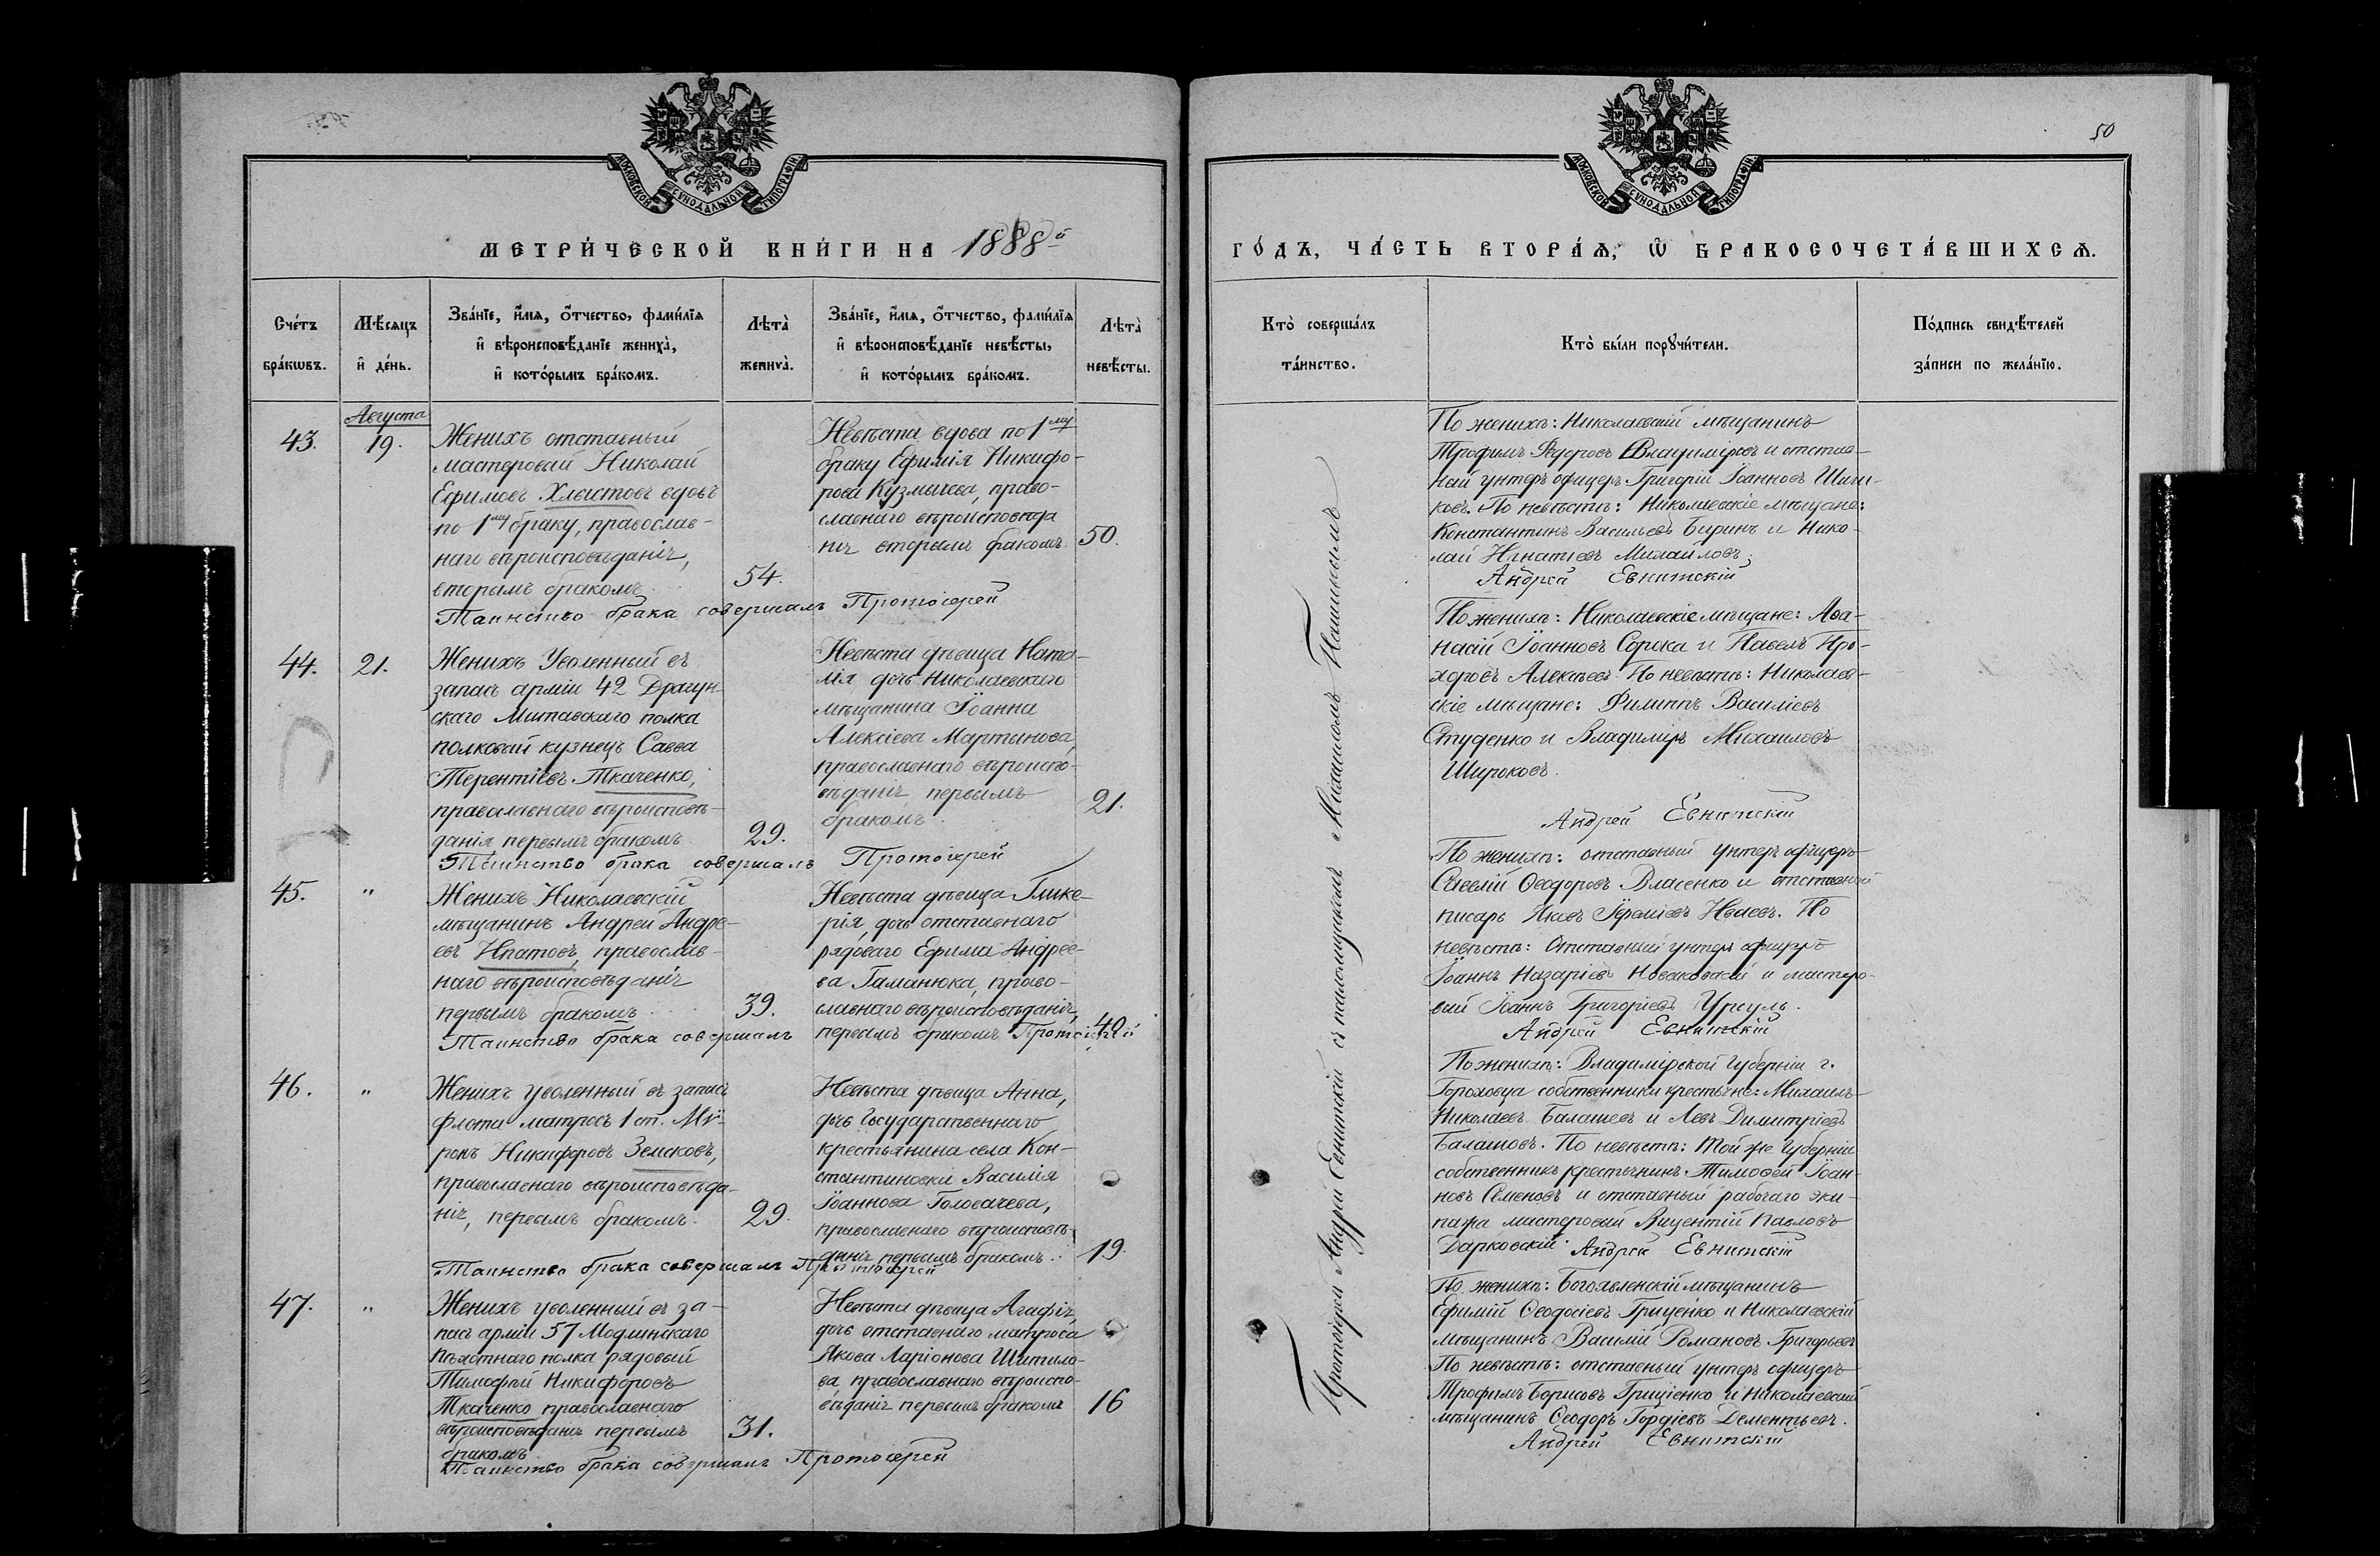 50
МОСКОВСКОЙ СѴНОДАЛЬНОЙ ТИПОГРАФІИ
МОСКОВСКОЙ СѴНОДАЛЬНОЙ ТИПОГРАФІИ
МЕТРИ́ЧЕСКОЙ КНИ́ГИ НА 1888й
ГО́ДЪ, ЧА́СТЬ ВТОРА́Ѧ, Ѡ҆ БРАКОСОЧЕТА́ВШИХСѦ.
Сче́тъ бра́кѡвъ.
Мѣ́сѧцъ и҆ де́нь.
Зва́нїе, и҆́мѧ, ѻ҆́тчество, фами́лїѧ
и҆ вѣроисповѣ́данїе жениха̀,
и҆ кото́рымъ бра́комъ.
Лѣта̀ жениха̀.
Зва́нїе, и҆́мѧ, ѻ҆́тчество, фами́лїѧ
и҆ вѣроисповѣ́данїе невѣ́сты,
и҆ кото́рымъ бра́комъ.
Лѣта̀ невѣ́сты.
Кто̀ соверша́лъ та́инство.
Кто̀ бы́ли порꙋчи́тели.
По́дпись свидѣ́телей за́писи по жела́нїю.
43.
Августа
19.
Женихъ отставный
мастеровый Николай
Ефимовъ Хлыстовъ вдовъ
по 1му браку, православ-
наго вѣроисповѣданія,
вторымъ бракомъ.
54.
Невѣста вдова по 1му
браку Ефимія Никифо-
рова Кузмичева, право-
славнаго вѣроисповѣда
нія вторымъ бракомъ.
50.
Таинство брака совершалъ Протоіерей
По женихѣ: Николаевскій мѣщанинъ
Трофимъ Ѳедоровъ Владиміровъ и отстав-
ный унтеръ офицеръ Григорій Іоанновъ Шиш-
ковъ. По невѣстѣ: Николаевскіе мѣщане:
Константинъ Васильевъ Биринъ и Нико-
лай Игнатіевъ Михаиловъ.
Андрей Евнитскій
44.
21.
Женихъ Уволенный въ
запасъ арміи 42 Драгун
скаго Митавскаго полка
полковый кузнецъ Савва
Терентіевъ Ткаченко,
православнаго вѣроисповѣ-
данія первымъ бракомъ.
29.
Невѣста дѣвица Ната-
лія дочь Николаевскаго
мѣщанина Іоанна
Алексіева Мартынова,
православнаго вѣроиспо-
вѣданія первымъ
бракомъ.
21.
Таинство брака совершалъ Протоіерей
По женихѣ: Николаевскіе мѣщане: Аѳа-
насій Іоанновъ Сорока и Павелъ Про-
хоровъ Алексѣевъ. По невѣстѣ: Николаев-
скіе мѣщане: Филиппъ Василіевъ
Студенко и Владиміръ Михаиловъ
Широковъ.
Андрей Евнитскій
45.
"
Женихъ Николаевскій
мѣщанинъ Андрей Андре-
евъ Ипатовъ, православ-
наго вѣроисповѣданія
первымъ бракомъ.
39.
Невѣста дѣвица Глике-
рія, дочь отставнаго
рядоваго Ефима Андрее-
ва Гаманюка, право-
славнаго вѣроисповѣданія,
первымъ бракомъ
40.
Таинство брака совершалъ Протоіерей
По женихѣ: отставный унтеръ офицеръ
Савелій Ѳеодоровъ Власенко и отставной
писарь Яковъ Іереміевъ Иваевъ. По
невѣстѣ: Отставный унтеръ офицеръ
Іоаннъ Назаріевъ Новаковскій и мастеро-
вый Іоаннъ Григоріевъ Урсулъ.
Андрей Евнитскій
46.
"
Женихъ уволенный въ запасъ
флота матросъ 1 ст. Мѵ-
ронъ Никифоровъ Земсковъ,
православнаго вѣроисповѣда-
нія, первымъ бракомъ.
29.
Невѣста дѣвица Анна,
дочь Государственнаго
крестьянина села Кон-
стантиновки Василія
Іоаннова Головачева,
православнаго вѣроисповѣ-
данія первымъ бракомъ.
19.
Таинство брака совершалъ Протоіерей
По женихѣ: Владимірской Губерніи г.
Гороховца собственники крестьяне: Михаилъ
Николаевъ Балашевъ и Левъ Димитріевъ
Балашовъ. По невѣстѣ: Той же Губерніи
собственникъ крестьянинъ Тимоѳей Іоан-
новъ Семеновъ и отставный рабочаго эки-
пажа мастеровый Викентій Павловъ
Дарковскій. Андрей Евнитскій
47.
"
Женихъ уволенный въ за-
пасъ арміи 57 Модлинскаго
Пѣхотнаго полка рядовый
Тимофей Никифоровъ
Ткаченко православнаго
вѣроисповѣданія первымъ
бракомъ
31.
Невѣста дѣвица Агафія,
дочь отставнаго матроса
Якова Ларіонова Шитило-
ва, православнаго вѣроиспо-
вѣданія первымъ бракомъ
16
Таинство брака совершалъ Протоіерей
По женихѣ: Богоявленскій мѣщанинъ
Ефимій Ѳеодосіевъ Гриценко и Николаевскій
мѣщанинъ Василій Романовъ Григорьевъ
По невѣстѣ: отставный унтеръ офицеръ
Трофимъ Борисовъ Гриціенко и Николаевскій
мѣщанинъ Ѳеодоръ Гордіевъ Дементьевъ.
Андрей Евнитскій
Протоіерей Андрей Евнитскій съ псаломщикомъ Михаиломъ